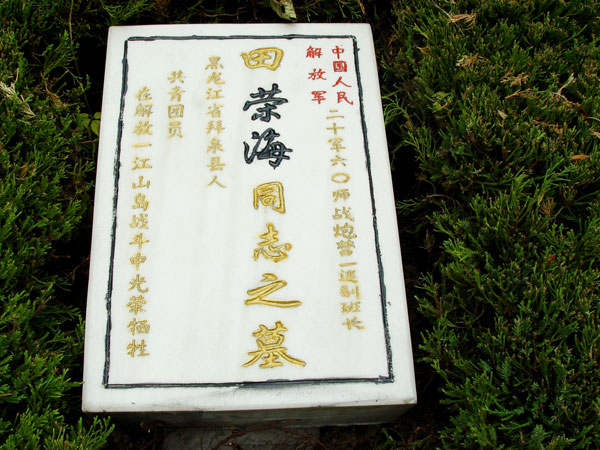 中國人民
解放军
二十军六〇师战炮营一連副班长
田荣海同志之墓
黑龙江省拜泉县人
共青团员
在解放一江山岛战斗中光荣牺牲